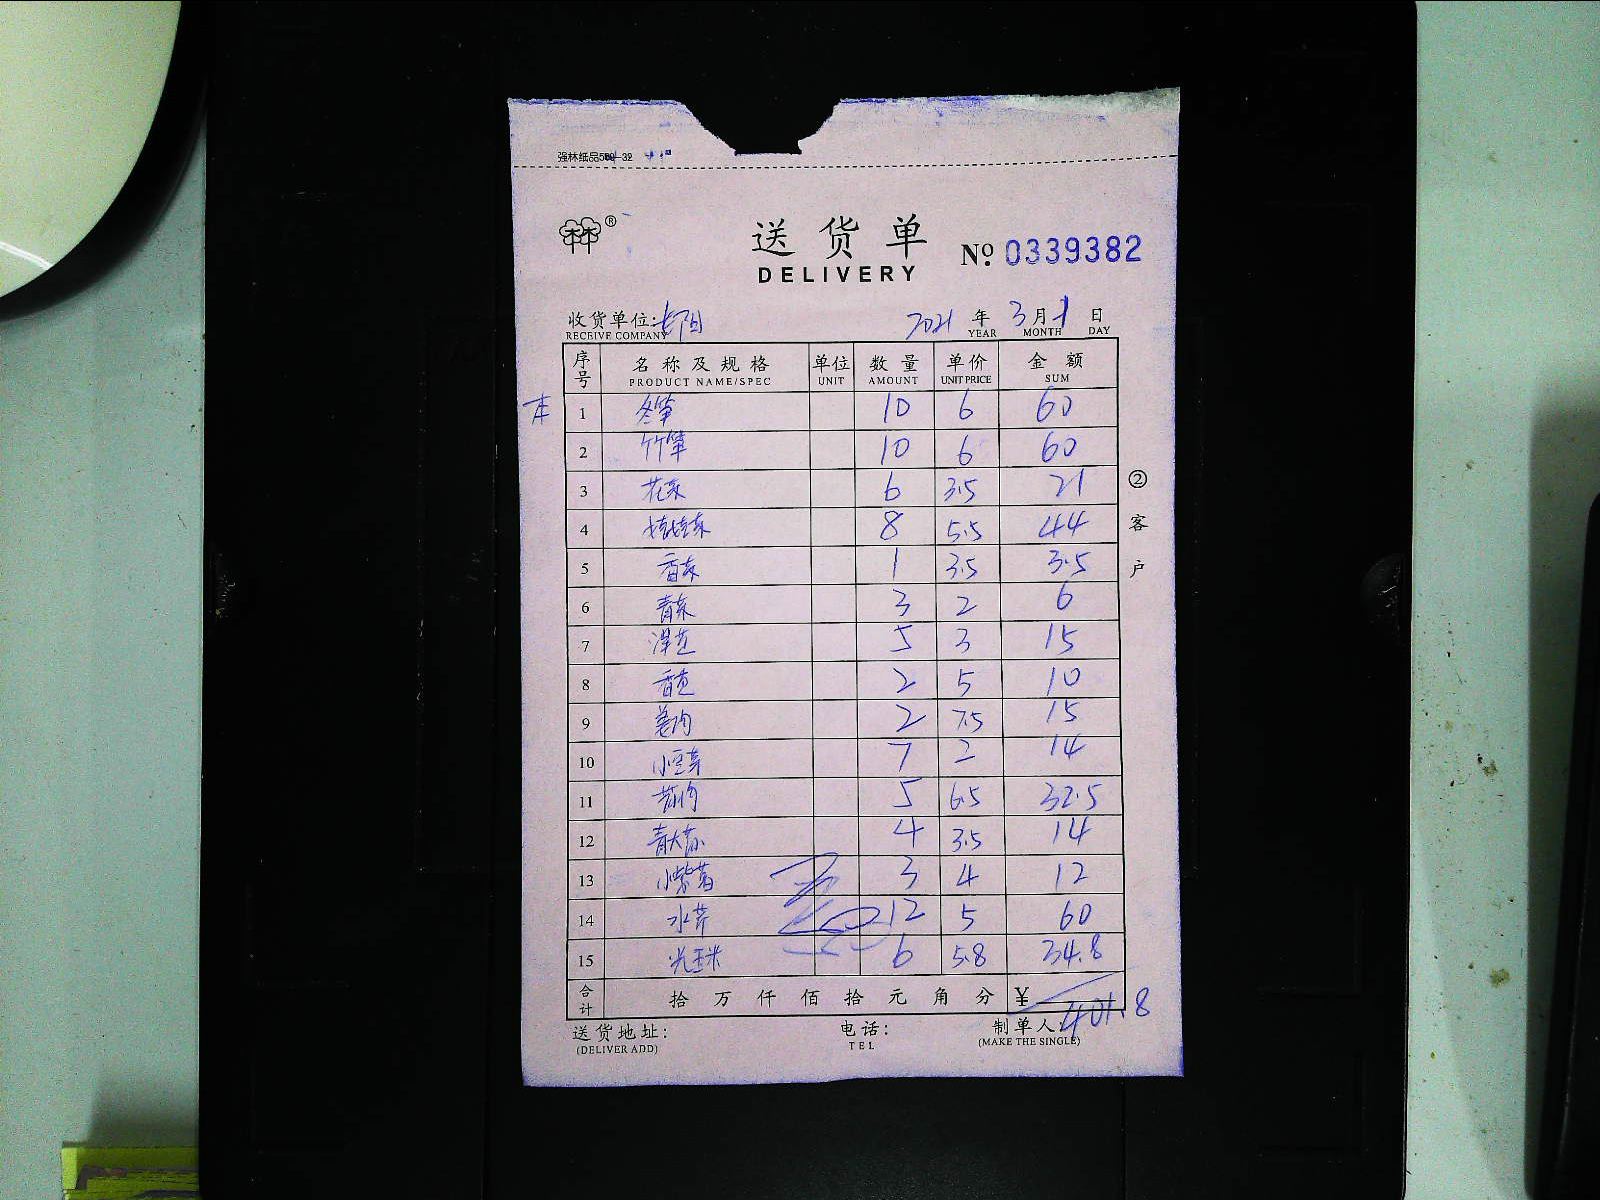 强林纸品5 -32
林®
送货单
DELIVERY
№ 0339382
收货单位:
2021 年 3 月 1 日
RECEIVE COMPANY YEAR MONTH DAY
序号 名称及规格 单位 数量 单价 金额
PRODUCT NAME/SPEC UNIT AMOUNT UNIT PRICE SUM
1 冬笋 10 6 60
2 竹笋 10 6 60
3 花菜 6 3.5 21
4 娃娃菜 8 5.5 44
5 香菜 1 3.5 3.5
6 青菜 3 2 6
7 5 3 15
8 2 5 10
9 姜肉 2 7.5 15
10 小豆芽 7 2 14
11 5 6.5 32.5
12 青大 4 3.5 14
13 小紫 3 4 12
14 水芹 12 5 60
15 光玉米 6 5.8 34.8
合计 拾 万 仟 佰 拾 元 角 分 ¥ 401.8
送货地址: 电话: 制单人:
(DELIVER ADD) TEL (MAKE THE SINGLE)
②客户